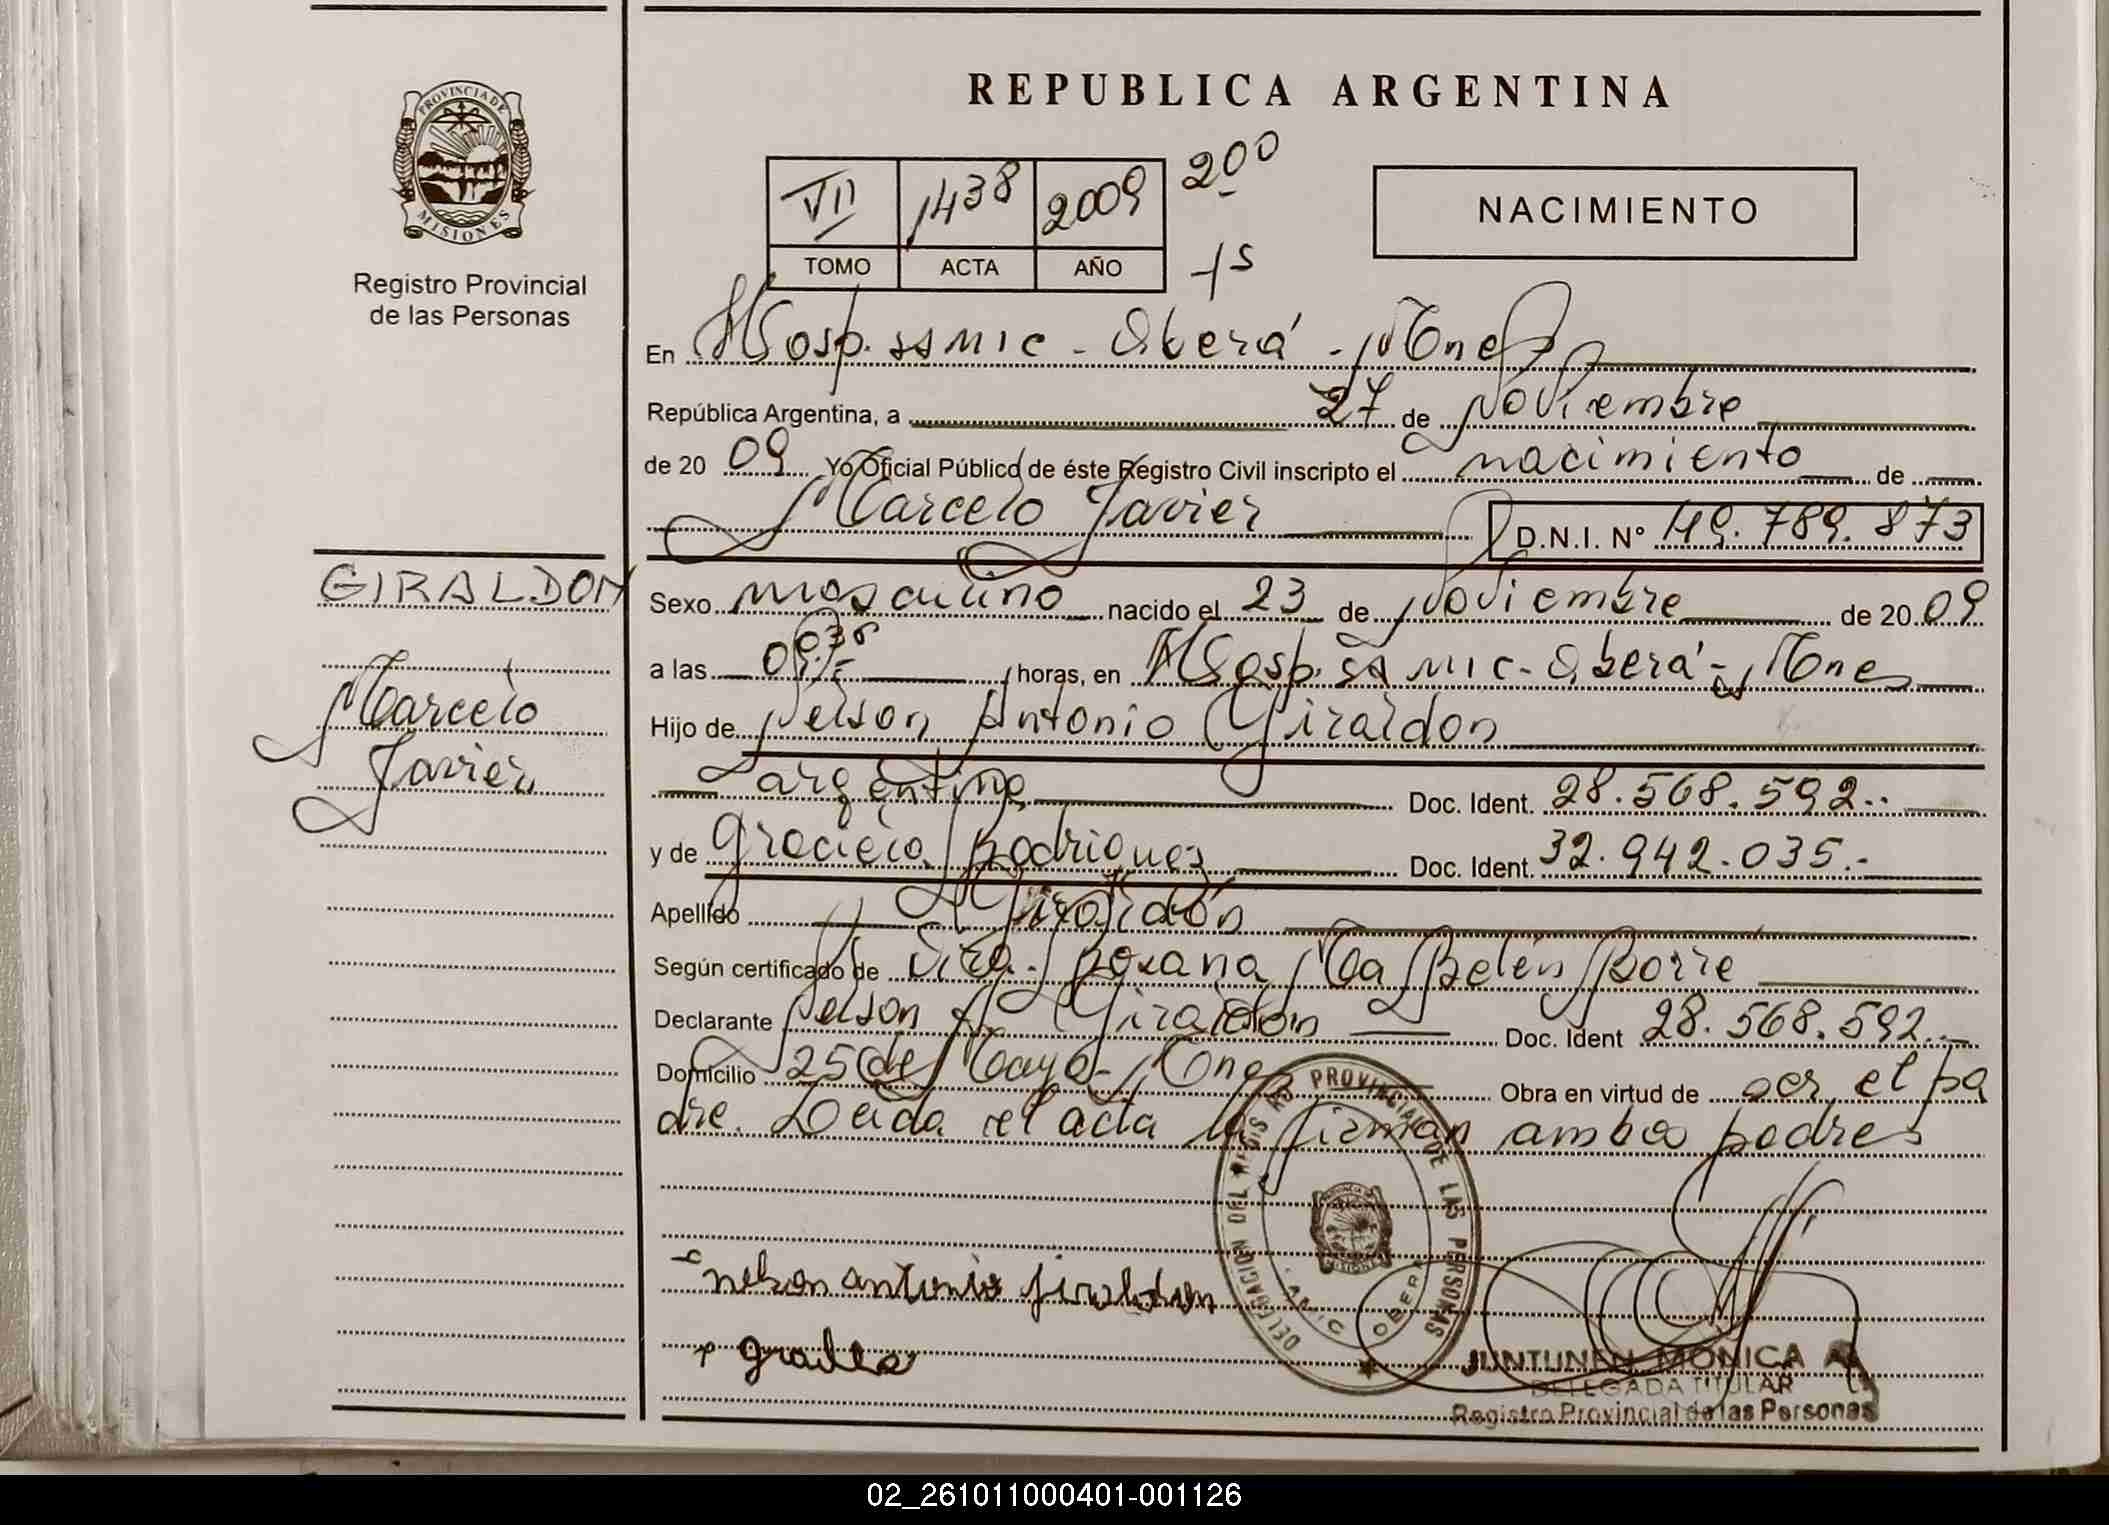 REPUBLICA ARGENTINA
PROVINCIA DE MISIONES
Registro Provincial
de las Personas
VII 1438 2009 200
TOMO ACTA AÑO 15
NACIMIENTO
En Hosp. SAMIC - Oberá - Mnes
República Argentina, a 27 de Noviembre
de 2009 Yo Oficial Público de éste Registro Civil inscripto el nacimiento de
Marcelo Javier D.N.I. Nº 49.789.873
GIRALDON
Marcelo
Javier
Sexo masculino nacido el 23 de Noviembre de 2009
a las horas, en Hosp. SAMIC - Oberá - Mnes
Hijo de Nelson Antonio Giraldon
argentino Doc. Ident. 28.568.592.-
y de Graciela Rodriguez Doc. Ident. 32.942.035.-
Apellido Giraldón
Según certificado de Dra. Roxana Ma Belén Borré
Declarante Nelson A. Giraldón Doc. Ident 28.568.592.-
Domicilio 25 de Mayo - Mnes Obra en virtud de ser el pa
dre. Leida el acta la firman ambos padres
DELEGACION DEL REGISTRO PROVINCIAL DE LAS PERSONAS
OBERA
nelson antonio jiraldon
JUNTUNEN MONICA
DELEGADA TITULAR
Registro Provincial de las Personas
02_261011000401-001126